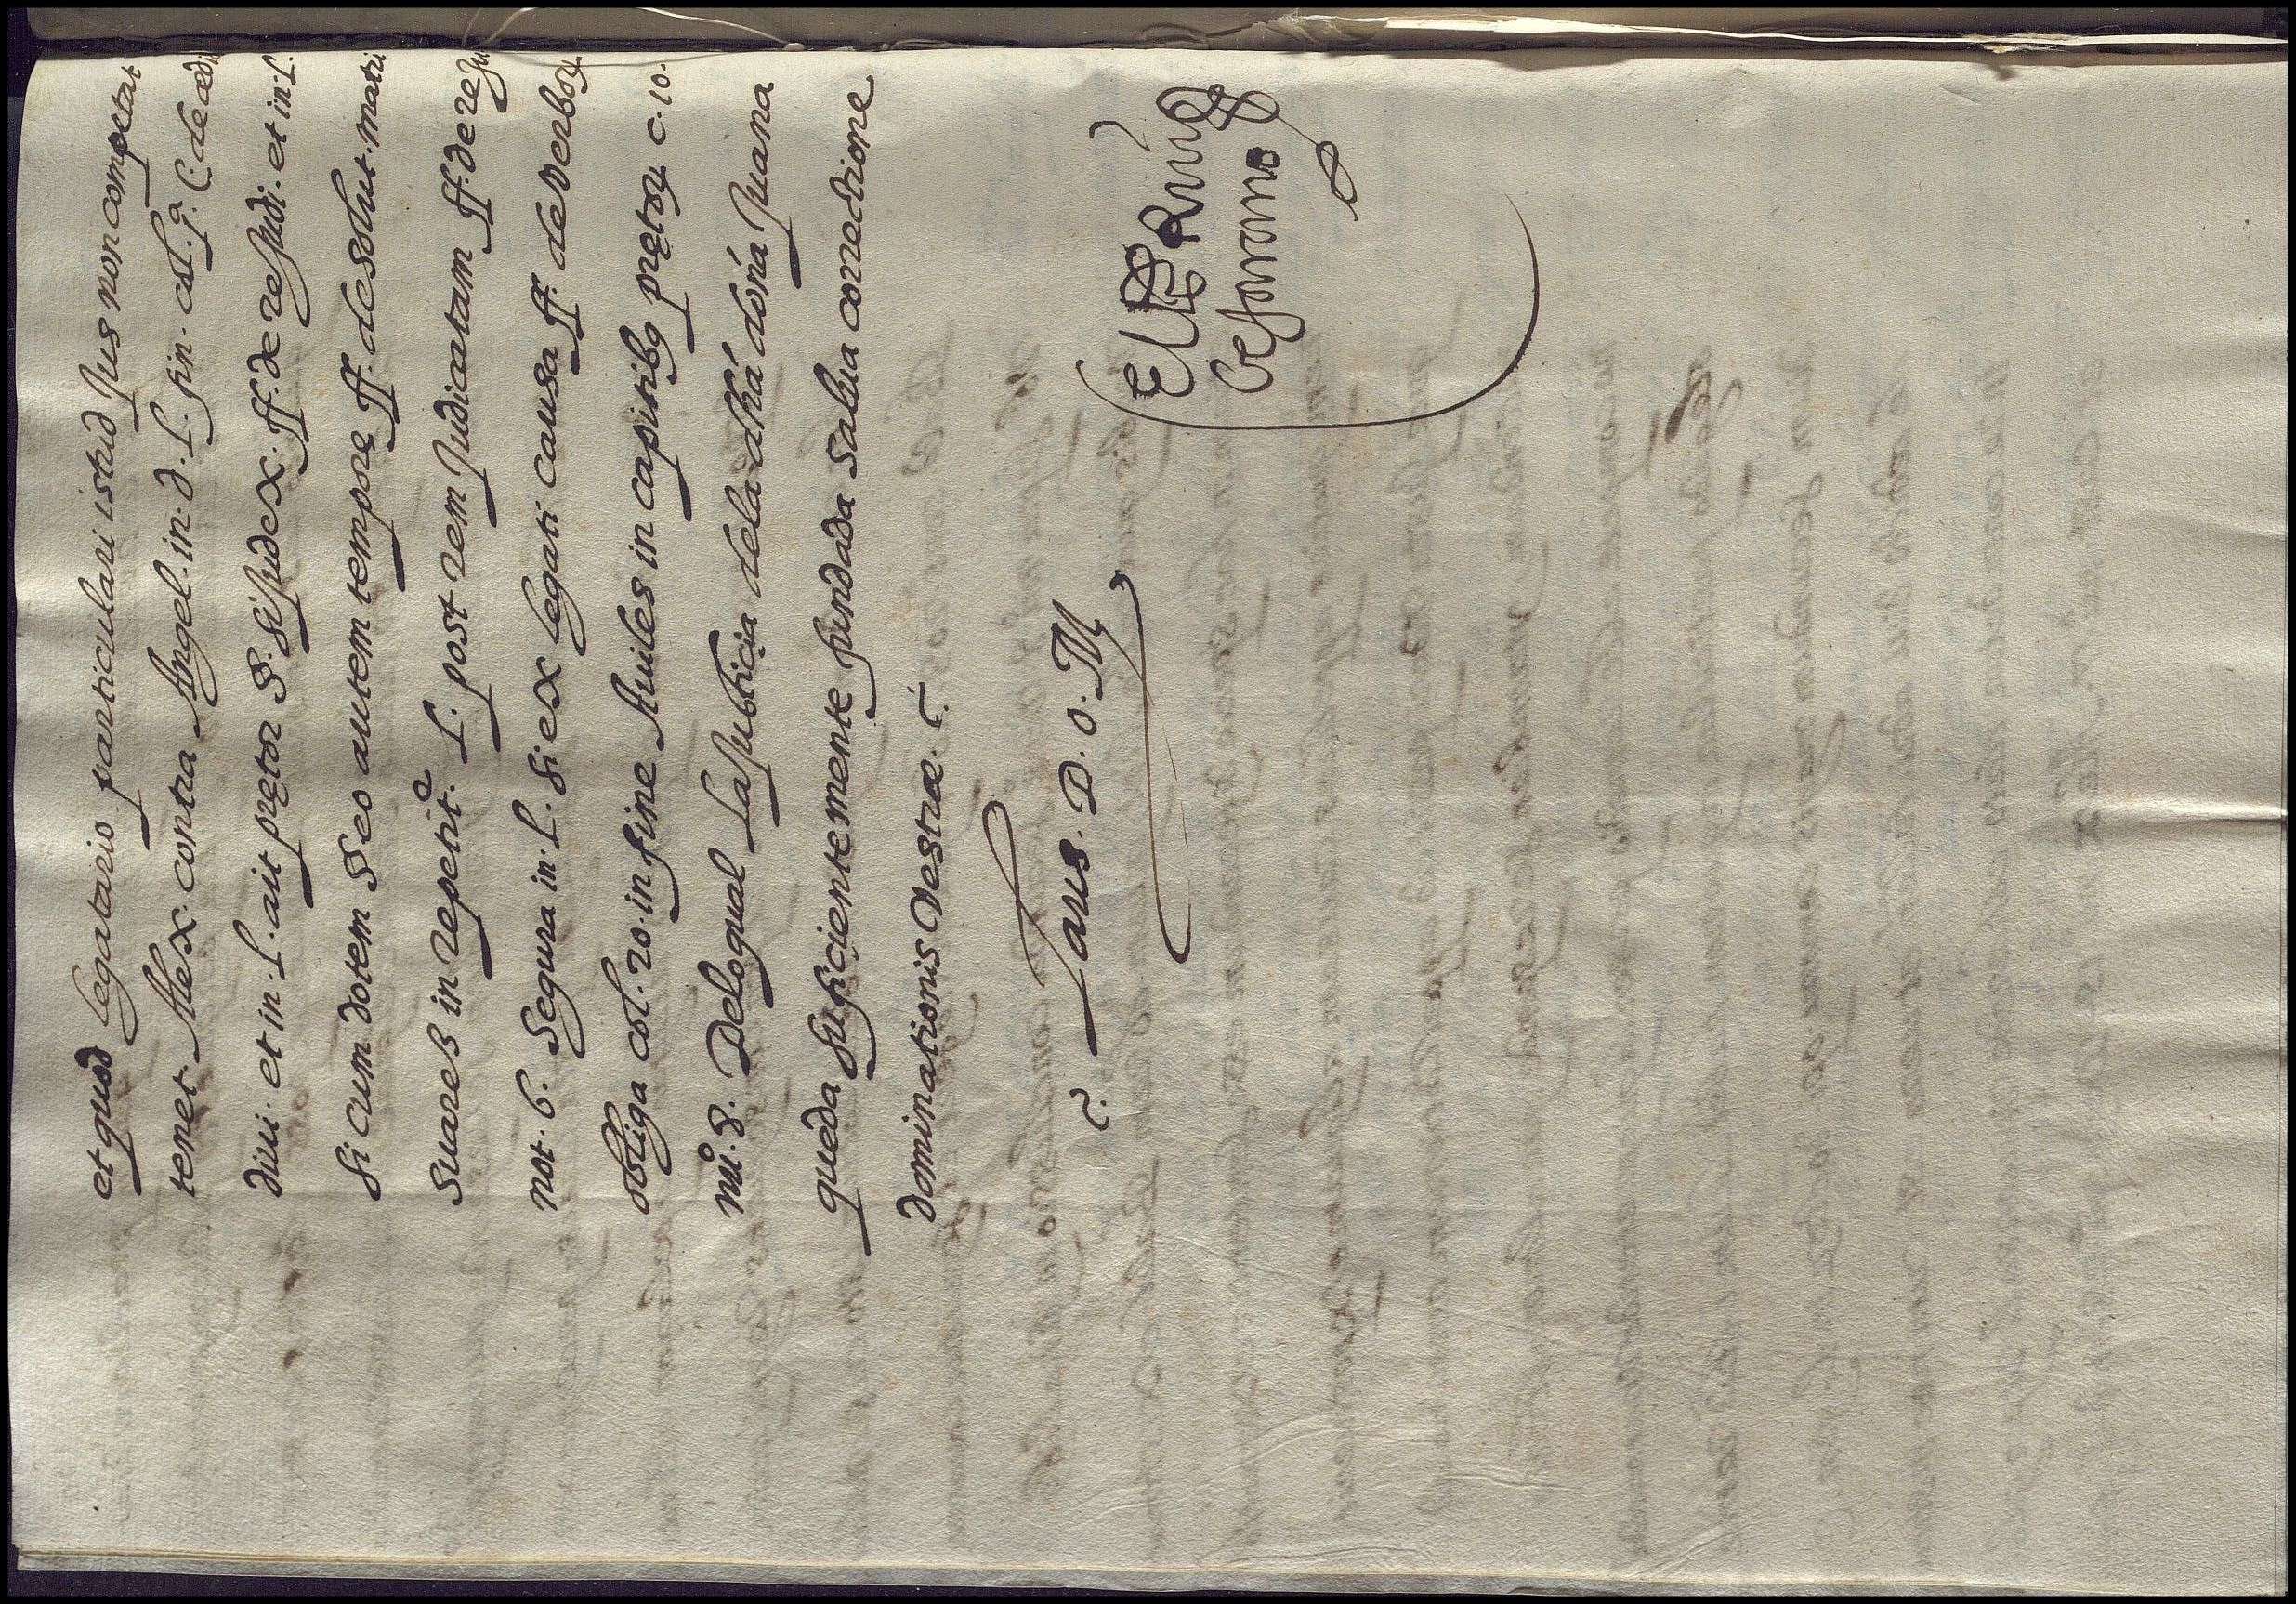 et quod legatario particulari istud Jus non competat
tenet Alex. contra Angel. in. d. L. fin. col. pa. C. de aedi
diui. et in. L. ait pretor §. si Judex. ff. de re Judi. et in. L.
si cum dotem § eo autem tempore ff. de solut. matri
Suares in repetit.e L. post rem Judicatam ff. de re Ju
not. 6. Segura in. L. si ex legati causa ff. de verbor
obliga col. 20. in fine Auiles in capitibus pretor. c. 10.
nu.o 8. Deloqual La Jusbticia dela dha doña Juana
queda suficientemente fundada salua correctione
dominationis Vestræ. c.
c. Laus. D. o. M
El